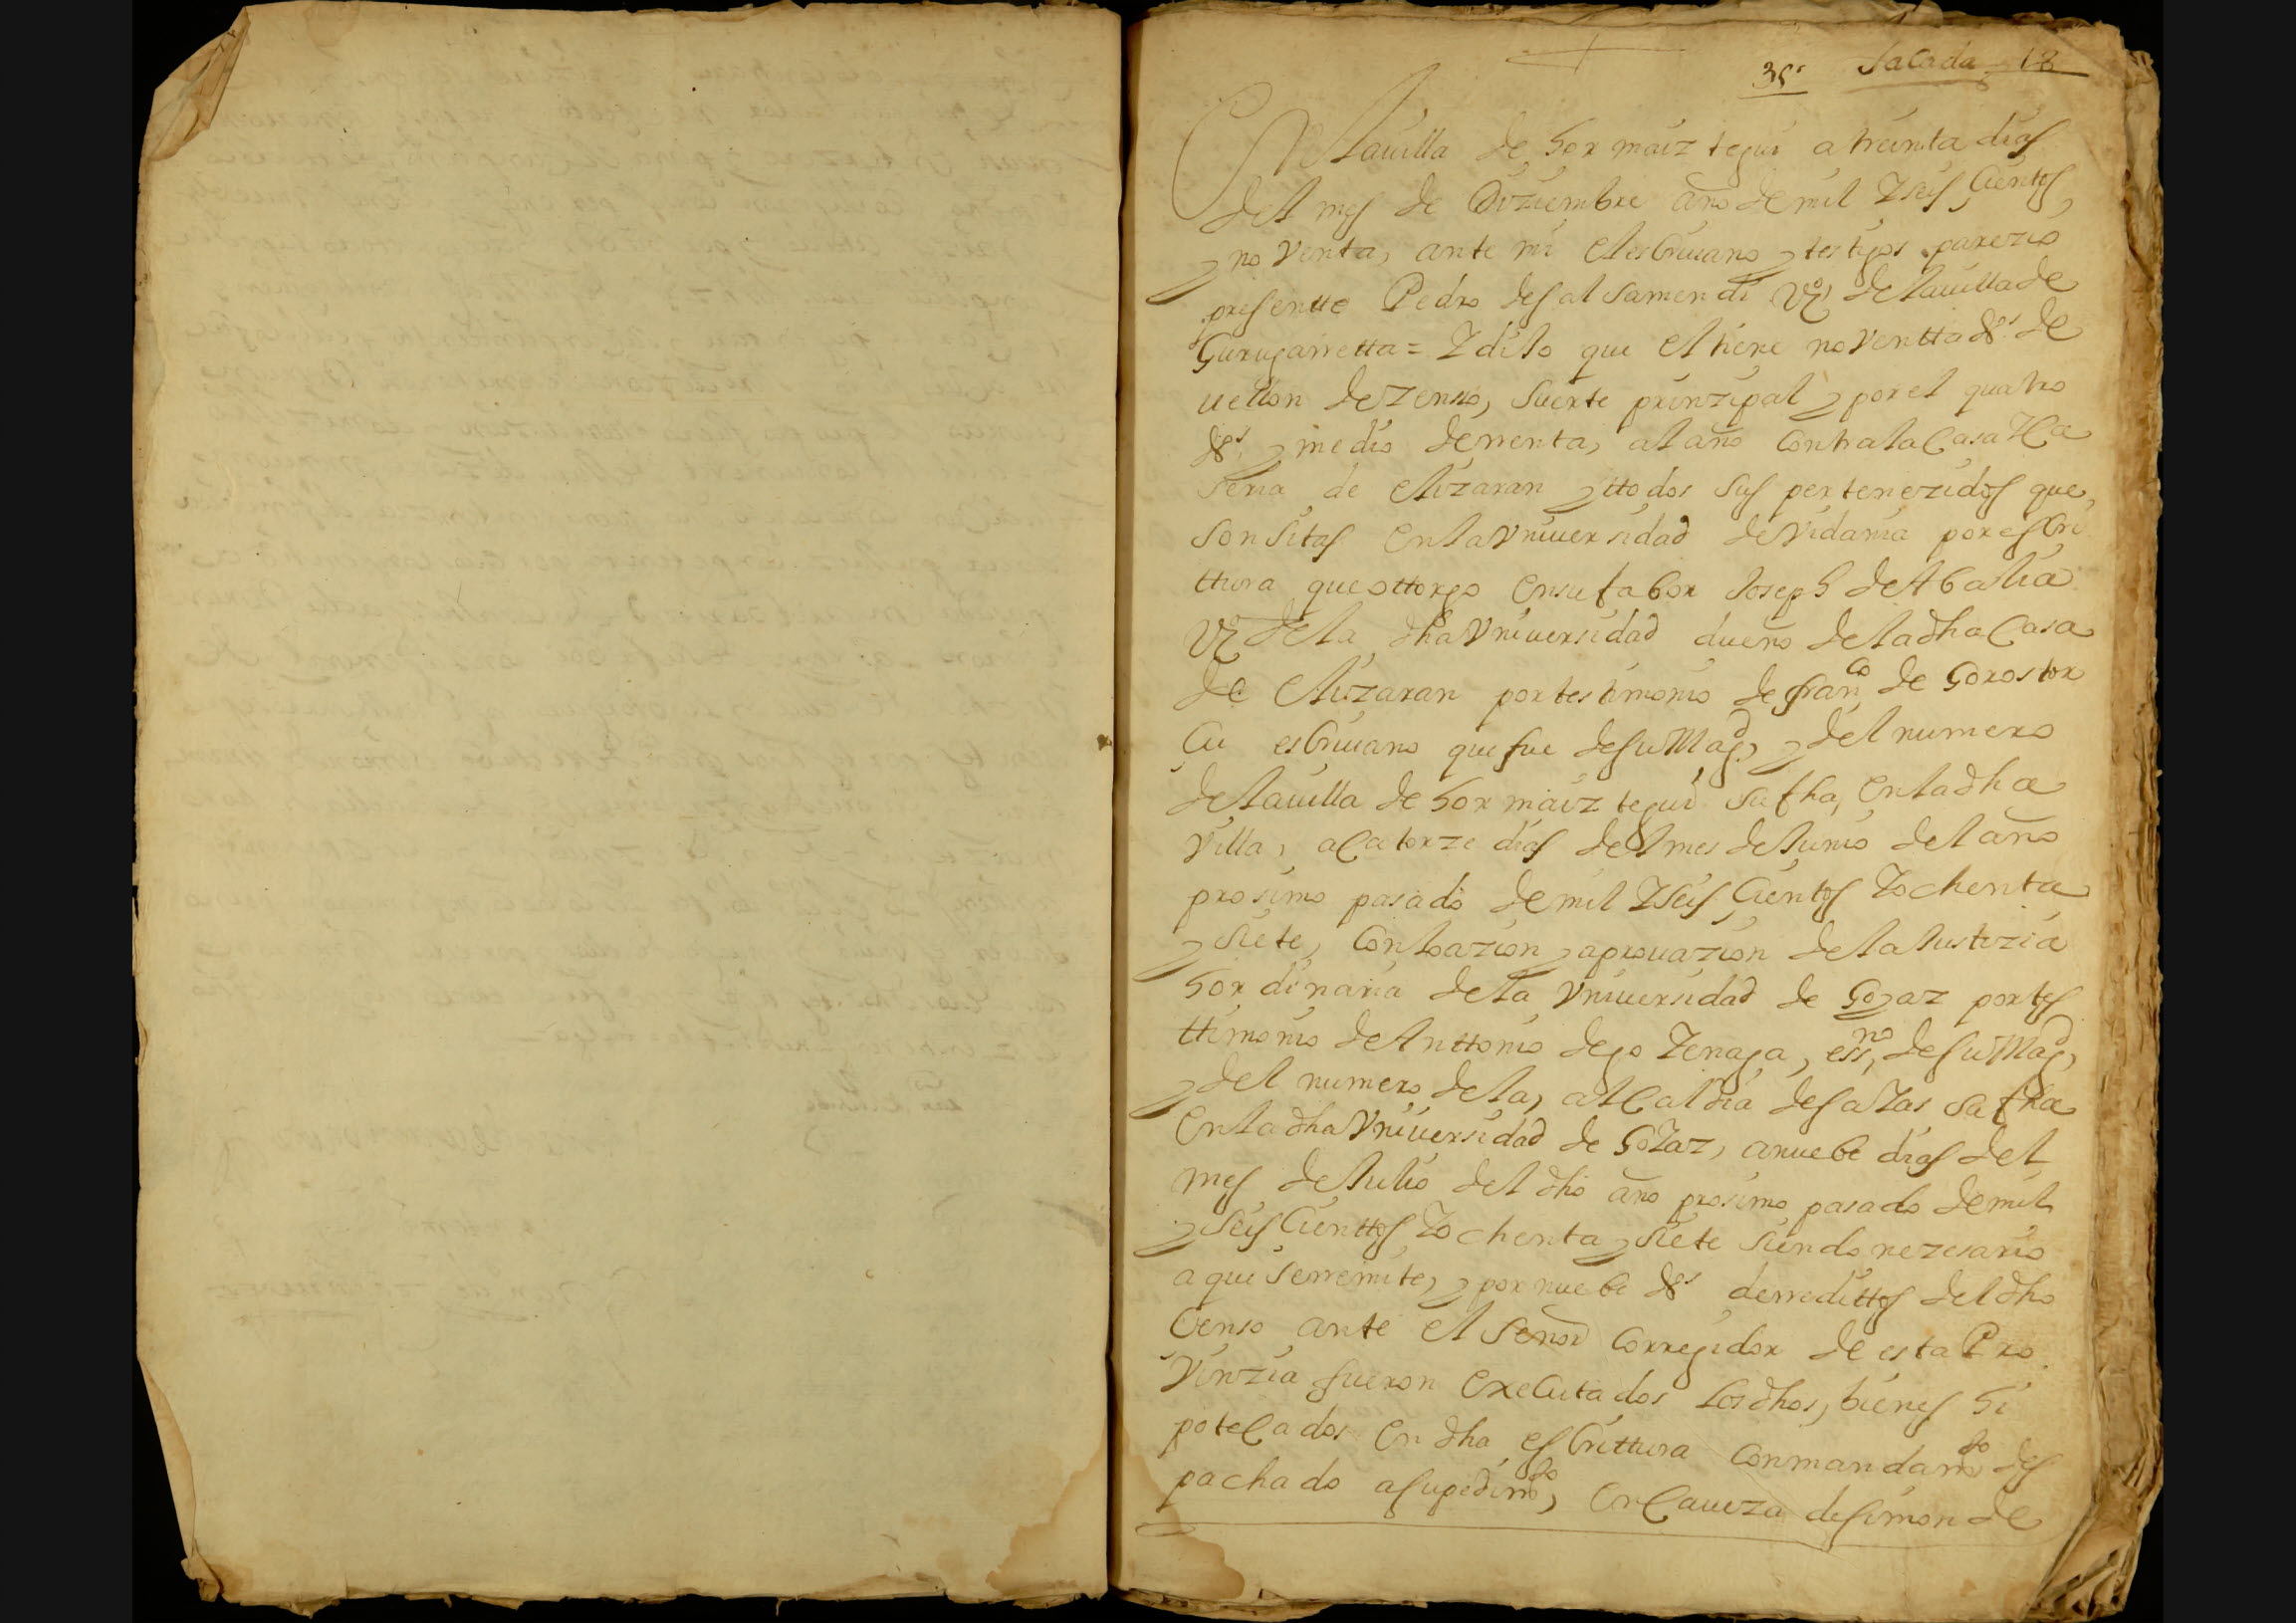 35. Sacada 18
En la uilla de hormaiztegui a treinta dias
del mes de Diziembre año de mil y seis çientos
y noventa, ante mi el escriuano y testigos parezio
presentte Pedro de salsamendi vzº de la uilla de
Gurugarretta = y dixo que el tiene noventta ds. de
uellon de zensso, suerte prinzipal y por el quatro
ds. y medio de rrenta, al año contra la casa y ca
seria de elizaran y ttodos sus pertenezidos que
son sitas en la vniuersidad de vidania por escri
ttura que ottorgo en su fabor Joseph de Abalia
vzº de la dha vniuersidad dueño de la dha casa
de elizaran por testimonio de franco de Gorostor
çu escriuano que fue de su Magd, y del numero
de la uilla de hormaiztegui su fha, en la dha
villa, a catorze dias del mes de Junio del año
prosimo pasado de mil y seis çientos y ochenta
y siete, con loazion y aprouazion de la Justizia
hordinaria de la vniuersidad de Goyaz por tes
ttimonio de Anttonio de goyenaga, essno, de su Magd,
y del numero de la, alcaldia de sayas su fha
en la dha vniuersidad de Goyaz, a nuebe dias del
mes de Julio del dho año prosimo pasado de mil
y seis cienttos y ochenta y siete siendo nezesario
a que se rremite, y por nuebe ds de rredittos del dho
censo ante el Señor Corregidor de esta Pro
vinzia fueron executados los dhos, bienes hi
potecados en dha escrittura con mandamto des
pachado a su pedimto, en caueza de simon de